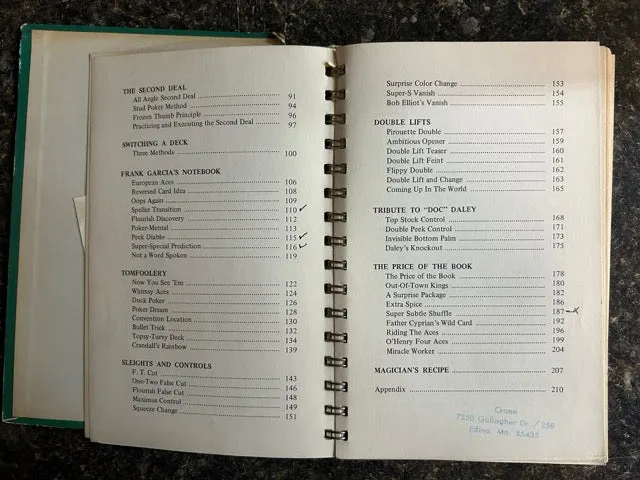 THE SECOND DEAL
All Angle Second Deal 91
Stud Poker Method 94
Frozen Thumb Principle 96
Practicing and Executing the Second Deal 97
SWITCHING A DECK
Three Methods 100
FRANK GARCIA'S NOTEBOOK
European Aces 106
Reversed Card Idea 108
Oops Again 109
Speller Transition 110 ✓
Flourish Discovery 112
Poker-Mental 113
Peek Diablo 115 ✓
Super-Special Prediction 116 ✓
Not a Word Spoken 119
TOMFOOLERY
Now You See 'Em 122
Whimsy Aces 124
Duck Poker 126
Poker Dream 128
Convention Location 130
Bullet Trick 132
Topsy-Turvy Deck 134
Crandall's Rainbow 139
SLEIGHTS AND CONTROLS
F. T. Cut 143
One-Two False Cut 146
Flourish False Cut 148
Maximus Control 149
Squeeze Change 151
Surprise Color Change 153
Super-S Vanish 154
Bob Elliot's Vanish 155
DOUBLE LIFTS
Pirouette Double 157
Ambitious Opener 159
Double Lift Teaser 160
Double Lift Feint 161
Flippy Double 162
Double Lift and Change 163
Coming Up In The World 165
TRIBUTE TO "DOC" DALEY
Top Stock Control 168
Double Peek Control 171
Invisible Bottom Palm 173
Daley's Knockout 175
THE PRICE OF THE BOOK
The Price of the Book 178
Out-Of-Town Kings 180
A Surprise Package 182
Extra Spice 186
Super Subtle Shuffle 187
Father Cyprian's Wild Card 192
Riding The Aces 196
O'Henry Four Aces 199
Miracle Worker 204
MAGICIAN'S RECIPE 207
Appendix 210
Crane
7350 Gallagher Dr. / 258
Edina, Mn. 55435